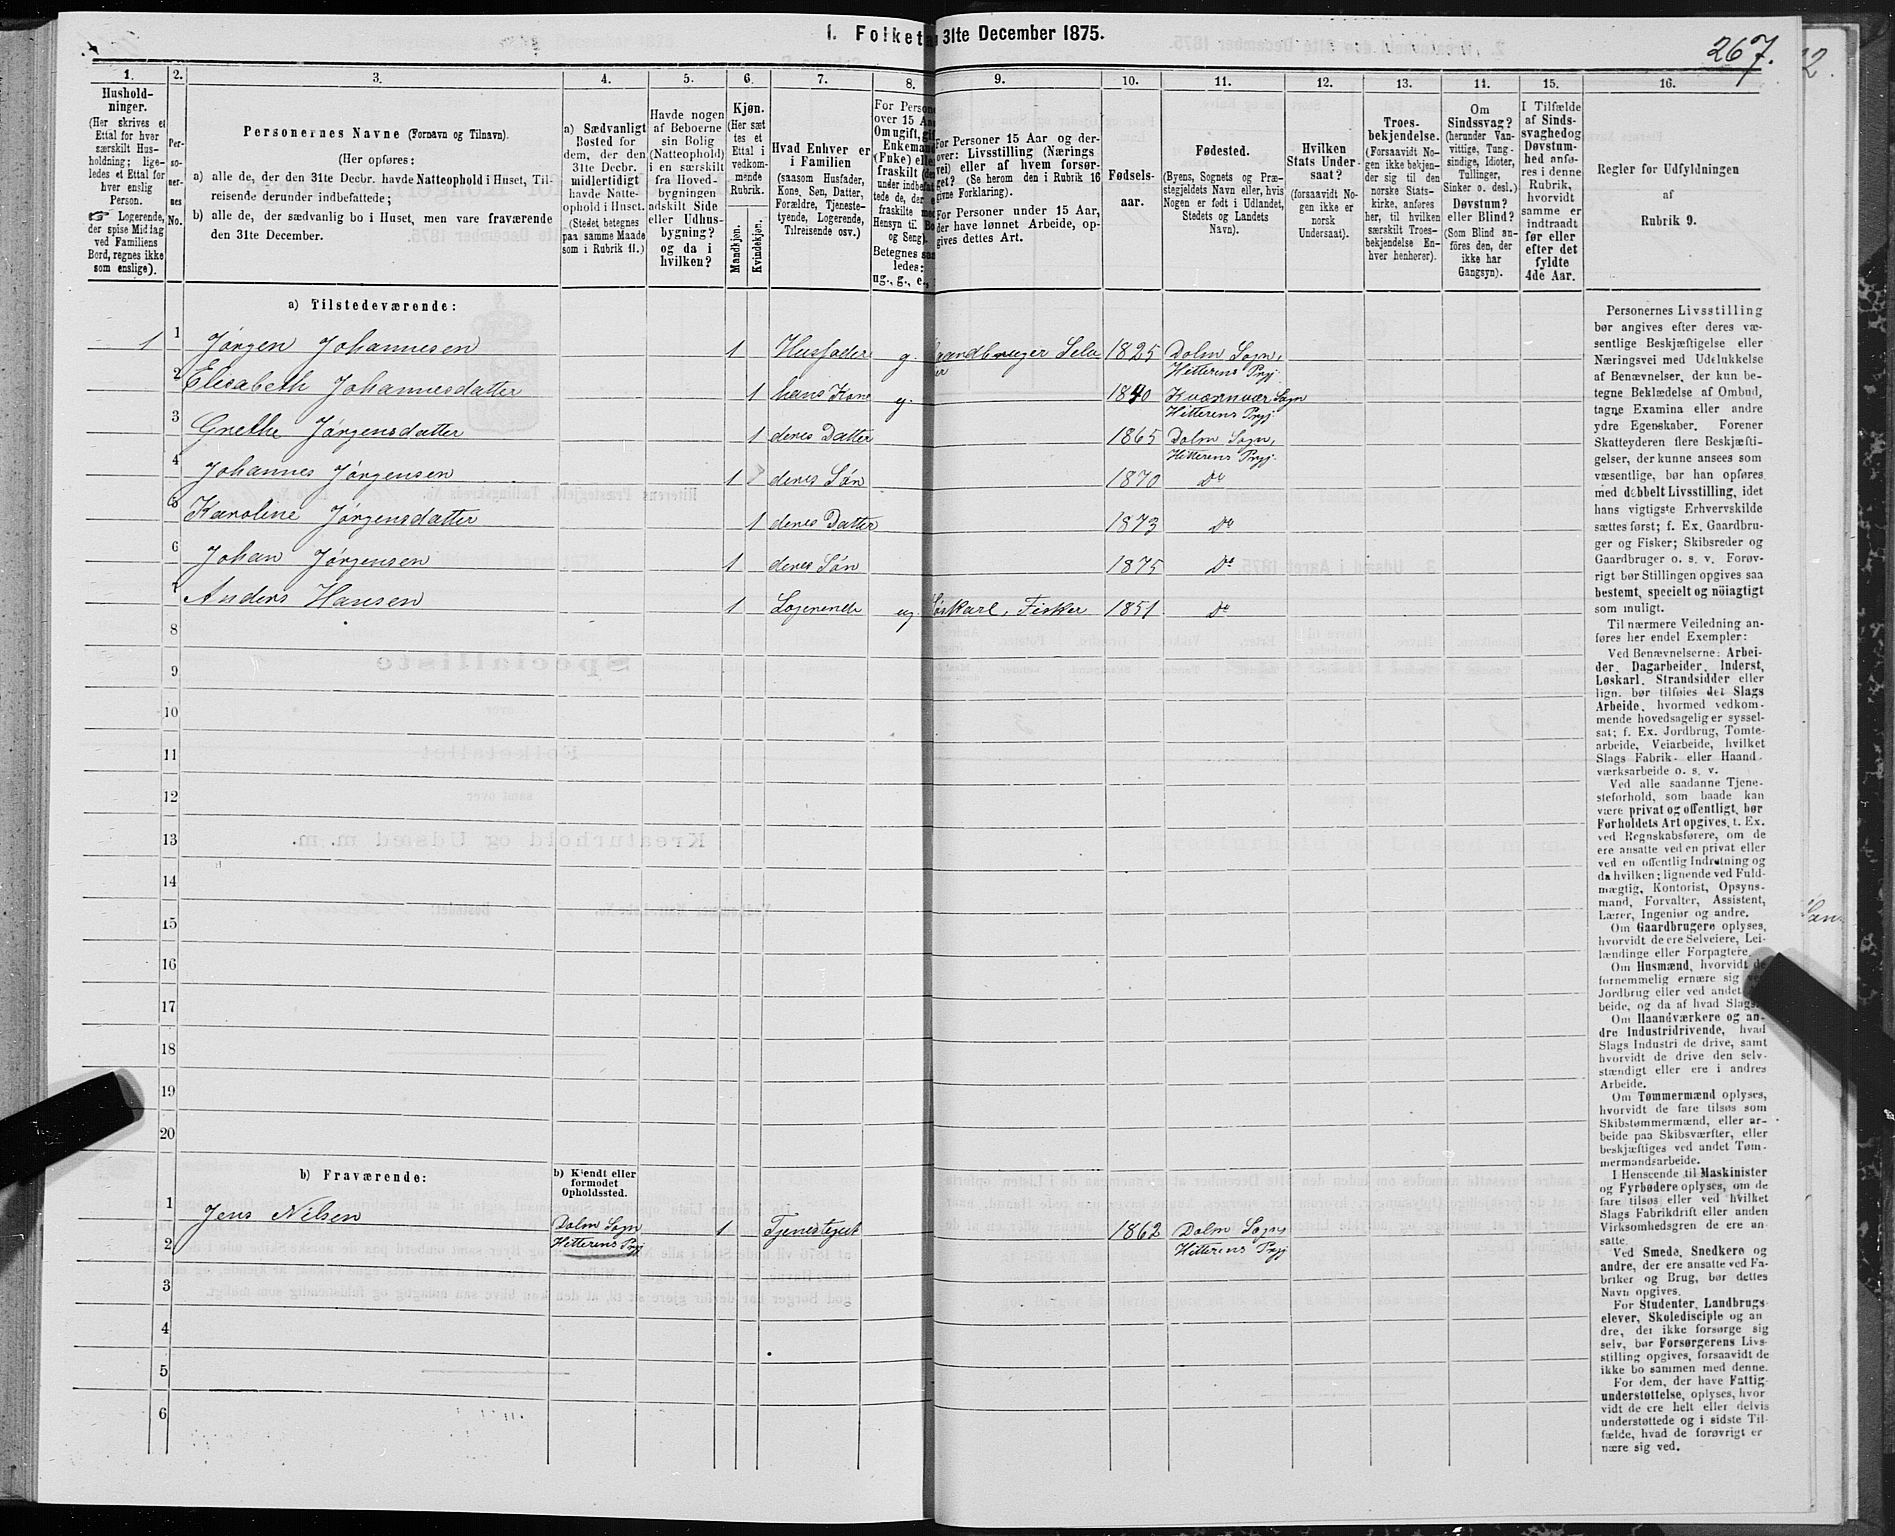 I. Folketa 31te December 1875.
267.
2.
1.
2.
3.
4.
5.
6.
7.
8.
9.
10.
11.
12.
13.
14.
15.
16.
Hushold-
ninger.
(Her skrives et
Ettal for hver
særskilt Hus-
holdning; lige-
ledes et Ettal for
hver enslig
Person.
☞ Logerende,
der spise Middag
ved Familiens
Bord, regnes ikke
som enslige).
Per-
so-
ner-
nes
No.
Personernes Navne (Fornavn og Tilnavn).
(Her opføres:
a) alle de, der den 31te Decbr. havde Natteophold i Huset, Til-
reisende derunder indbefattede;
b) alle de, der sædvanlig bo i Huset, men vare fraværende
den 31te December.
a) Sædvanligt
Bosted for
dem, der den
31te Decbr.
midlertidigt
havde Natte-
ophold i Huset.
(Stedet betegnes
paa samme Maade
som i Rubrik 11.)
Havde nogen
af Beboerne
sin Bolig
(Natteophold)
i en særskilt
fra Hoved-
bygningen
adskilt Side
eller Udhus-
bygning?
og da i
hvilken?
Kjøn.
(Her sæt-
tes et
Ettal i
vedkom-
mende
Rubrik.
Mandkjøn.
Kvindekjøn.
Hvad Enhver er
i Familien
(saasom Husfader,
Kone, Søn, Datter,
Forældre, Tjeneste-
tyende, Logerende,
Tilreisende osv.)
For Person
over 15 Aar
Om ugift, gift
Enkemand
(Enke) eller
fraskilt (der-
under indbefat
tede de, der e
fraskilte med
Hensyn til Bo
og Seng).
Betegnes saa
ledes:
ug., g., e.,
For Personer 15 Aar og der-
over: Livsstilling (Nærings
vei) eller af hvem forsør-
get? (Se herom den i Rubrik 16
givne Forklaring).
For Personer under 15 Aar,
der have lønnet Arbeide, op-
gives dettes Art.
Fødsels-
aar.
Fødested.
(Byens, Sognets og Præ-
stegjeldets Navn eller, hvis
Nogen er født i Udlandet,
Stedets og Landets
Navn).
Hvilken
Stats Under-
saat?
(forsaavidt No-
gen ikke er
norsk
Undersaat).
Troes-
bekjendelse.
(Forsaavidt No-
gen ikke bekjen-
der sig til den
norske Stats-
kirke, anføres
her, til hvilken
særskilt Troes-
bekjendelse En-
hver henhører).
Om
Sindssvag?
(herunder Van-
vittige, Tung-
sindige, Idioter,
Tullinger,
Sinker o. desl.)
Døvstum?
eller Blind?
(Som Blind an-
føres den, der
ikke har
Gangsyn).
I Tilfælde
af Sinds-
svaghed og
Døvstum-
hed anfø-
res i denne
Rubrik,
hvorvidt
samme er
indtraadt
før eller
efter det
fyldte
4de Aar.
Regler for Udfyldningen
af
Rubrik 9.
a) Tilstedeværende:
1 1 Jørgen Johannesen 1 Husfader g. aandbruger Selv 1825 Dolm Sogn,
er Hitterens Prgj.
2 Elisabeth Johannesdatter 1 hans Kone g. 1840 Kvænvær Sogn
Hitterens Prgj
3 Grethe Jørgensdatter 1 deres Datter 1865 Dolm Sogn,
Hitterens Prgj.
4 Johannes Jørgensen 1 deres Søn 1870 Do
5 Karoline Jørgensdatter 1 deres Datter 1873 Do
6 Johan Jørgensen 1 deres Søn 1875 Do
7 Anders Hansen 1 Logerende ug. Løskarl, Fisker 1851 Do
8
9
10
11
12
13
14
15
16
17
18
19
20
b) Fraværende:
b) Kjendt eller
formodet
Opholdssted.
1 Jens Nilsen Dolm Sogn 1 Tjenestegut 1862 Dolm Sogn,
2 Hitterens Prgj Hitterens Prgj
3
4
5
6
Personernes Livsstilling
bør angives efter deres væ-
sentlige Beskjæftigelse eller
Næringsvei med Udelukkelse
af Benævnelser, der kun be-
tegne Beklædelse af Ombud,
tagne Examina eller andre
ydre Egenskaber. Forener
Skatteyderen flere Beskjæfti-
gelser, der kunne ansees som
væsentlige, bør han opføres
med dobbelt Livsstilling, idet
hans vigtigste Erhvervskilde
sættes først; f. Ex. Gaardbru-
ger og Fisker; Skibsreder og
Gaardbruger o. s. v. Forøv-
rigt bør Stillingen opgives saa
bestemt, specielt og nøiagtigt
som muligt.
Til nærmere Veiledning an-
føres her endel Exempler:
Ved Benævnelserne: Arbei-
der, Dagarbeider, Inderst,
Løskarl, Strandsidder eller
lign. bør tilføies det Slags
Arbeide, hvormed vedkom-
mende hovedsagelig er syssel-
sat; f. Ex. Jordbrug, Tomte-
arbeide, Veiarbeide, hvilket
Slags Fabrik- eller Haand-
værksarbeide o. s. v.
Ved alle saadanne Tjene-
steforhold, som baade kan
være privat og offentligt, bør
Forholdets Art opgives, t. Ex.
ved Regnskabsførere, om de
ere ansatte ved en privat eller
ved en offentlig Indretning og
da hvilken; lignende ved Fuld-
mægtig, Kontorist, Opsyns-
mand, Forvalter, Assistent,
Lærer, Ingeniør og andre.
Om Gaardbrugere oplyses,
hvorvidt de ere Selveiere, Lei-
lændinge eller Forpagtere.
Om Husmænd, hvorvidt de
fornemmelig ernære sig ved
Jordbrug eller ved andet
beide, og da af hvad Slags.
Om Haandværkere og an-
dre Industridrivende, hvad
Slags Industri de drive, samt
hvorvidt de drive den selv-
stændigt eller ere i andres
Arbeide.
Om Tømmermænd oplyses,
hvorvidt de fare tilsøs som
Skibstømmermænd, eller ar-
beide paa Skibsværfter, eller
beskjæftiges ved andet Tøm-
mermandsarbeide.
I Henseende til Maskinister
og Fyrbødere oplyses, om de
fare tilsøs eller ved hvilket
Slags Fabrikdrift eller anden
Virksomhedsgren de ere an-
satte.
Ved Smede, Snedkere og
andre, der ere ansatte ved Fa-
briker og Brug, bør dettes
Navn opgives.
For Studenter, Landbrugs-
elever, Skoledisciple og an
dre, der ikke forsørge sig
selv, bør Forsørgerens Livs-
stilling opgives, forsaavidt de
ikke bo sammen med denne.
For dem, der have Fattig-
understøttelse, oplyses, hvor-
vidt de ere helt eller delvis
understøttede og i sidste Til-
fælde, hvad de forøvrigt er
nære sig ved.